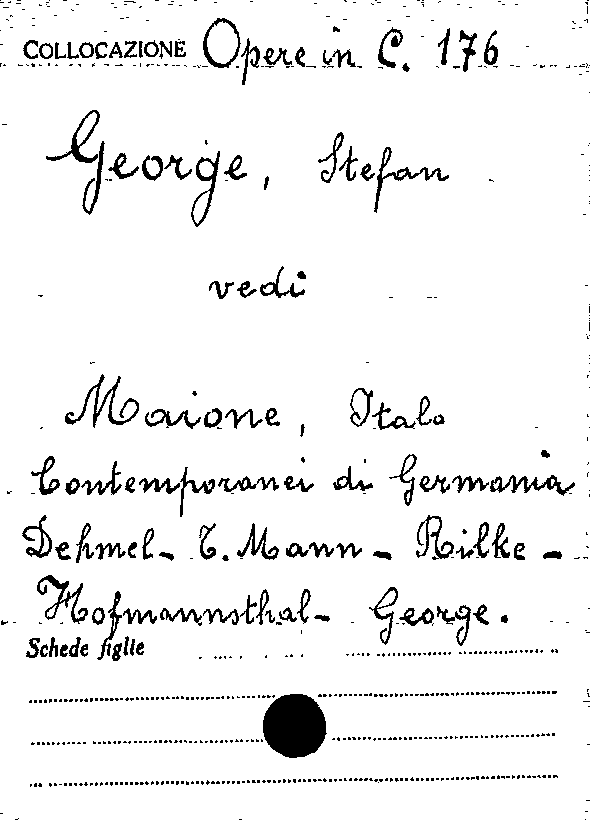 COLLOCAZIONE Opere in C. 176
George, Stefan
vedi
Maione, Italo
Contemporanei di Germania
Dehmel - T. Mann - Rilke -
Hofmannsthal - George.
Schede figlie